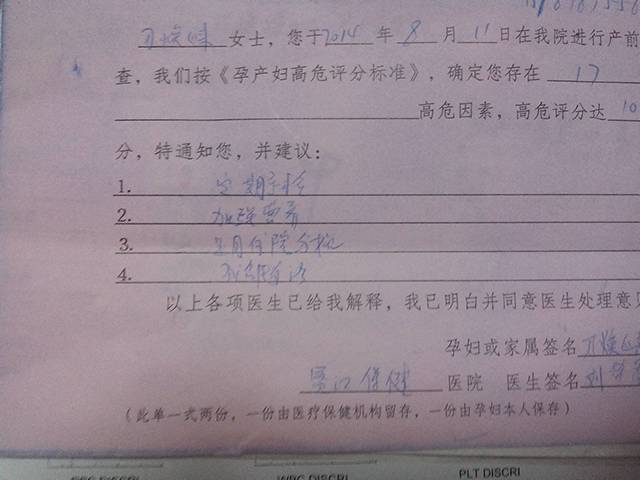 女士，您于2014年8月11日在我院进行产前
查，我们按《孕产妇高危评分标准》，确定您存在 17
高危因素，高危评分达 10
分，特通知您，并建议：
1. 定期产检
2. 加强营养
3. 住院分娩
4.
以上各项医生已给我解释，我已明白并同意医生处理意
孕妇或家属签名
保健 医院 医生签名
（此单一式两份，一份由医疗保健机构留存，一份由孕妇本人保存）
WBC DISCRI
PLT DISCRI